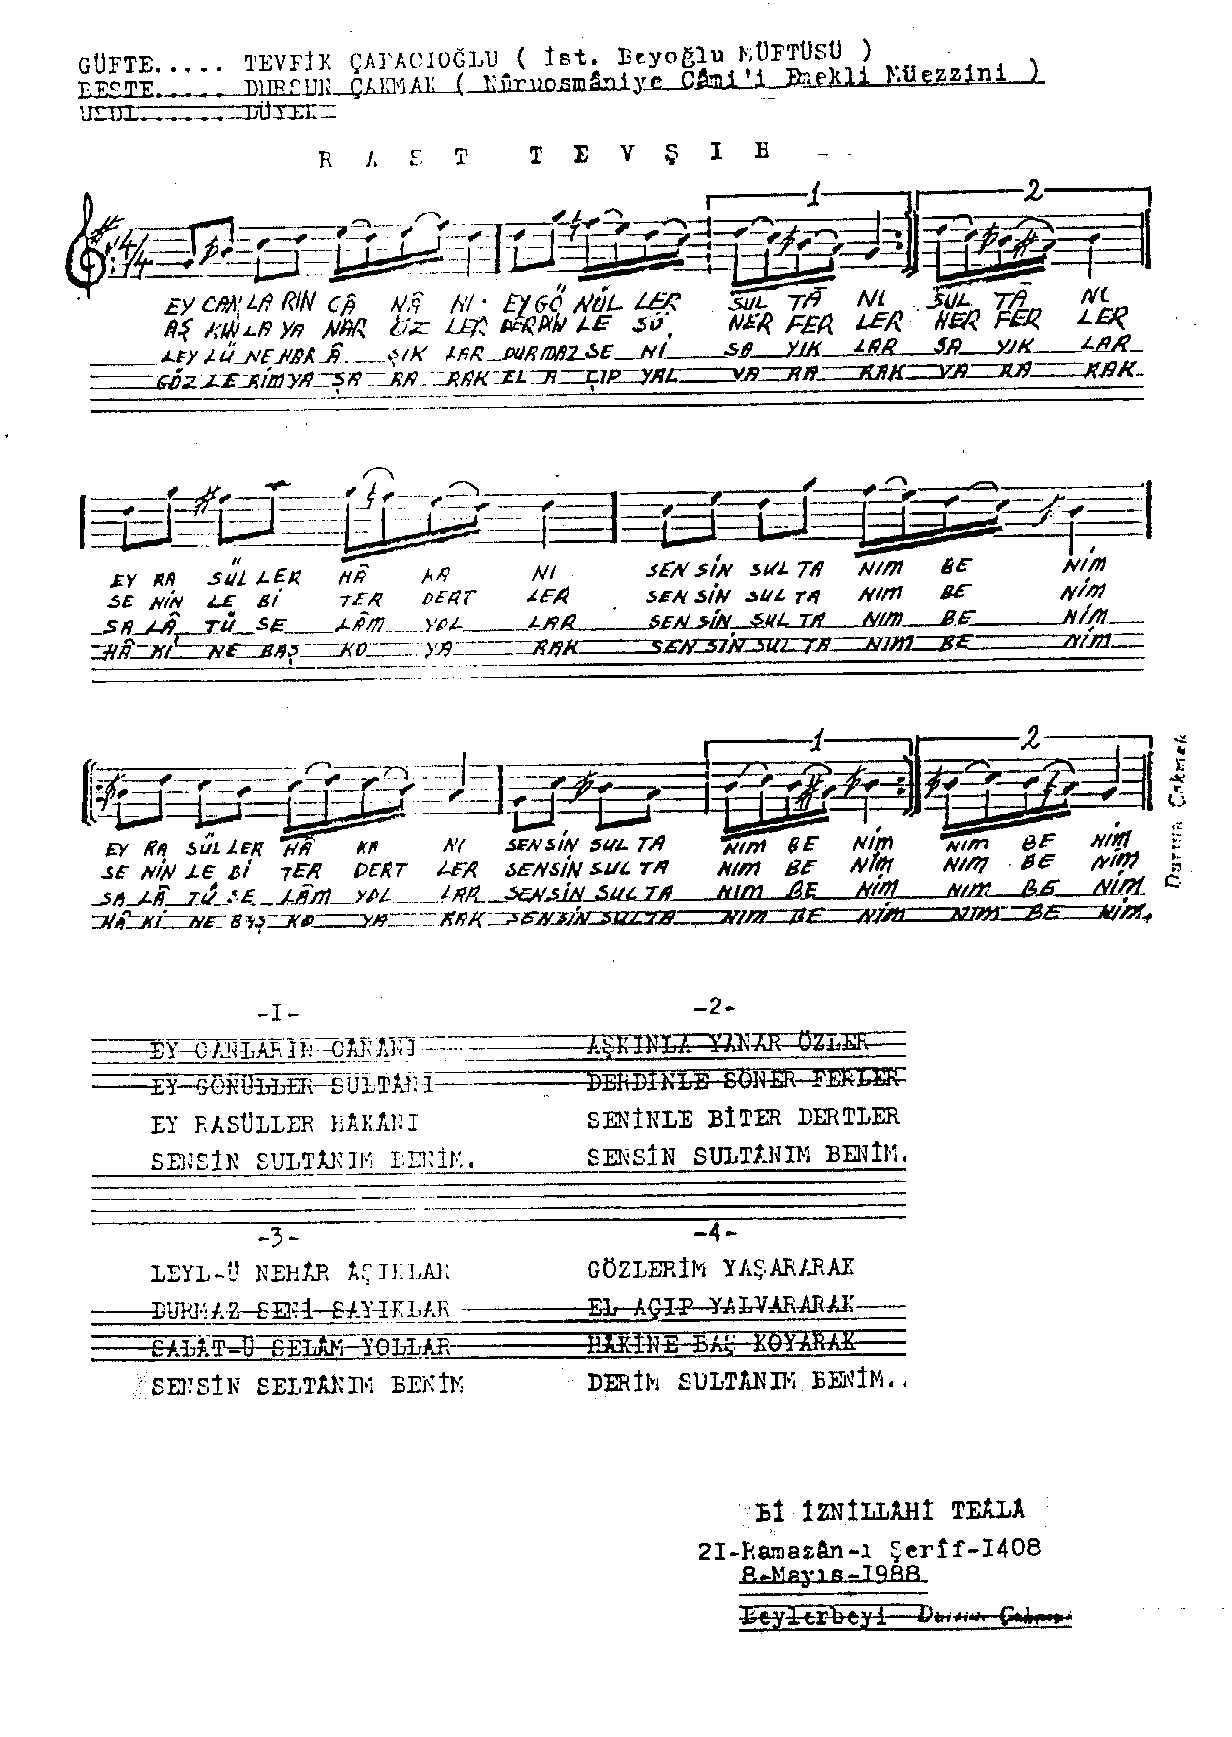 GÜFTE..... TEVFİK ÇAPACIOĞLU ( İst. Beyoğlu MÜFTÜSÜ )
BESTE..... DURSUN ÇAKMAK ( Nûruosmâniye Câmi'i Emekli Müezzini )
USUL...... DÜYEK
R A S T T E V Ş İ H
1 2
4/4
EY CAN LA RIN CÂ NÂ NI EY GÖ NÜL LER SUL TÂ NI SUL TÂ NI
AŞ KIN LA YA NAR ÖZ LER DERDİN LE SÖ NER FER LER NER FER LER
LEY LÜ NE HAR Â ŞIK LAR DURMAZ SE Nİ SA YIK LAR SA YIK LAR
GÖZ LE RİM YA ŞA RA RAK EL A ÇIP YAL VA RA RAK VA RA RAK
EY RA SÜL LER HÂ KA NI SEN SİN SUL TA NIM BE NİM
SE NİN LE Bİ TER DERT LER SEN SİN SUL TA NIM BE NİM
SA LÂ TÜ SE LÂM YOL LAR SEN SİN SUL TA NIM BE NİM
HÂ Kİ NE BAŞ KO YA RAK SEN SİN SUL TA NIM BE NİM
1 2
EY RA SÜL LER HÂ KA NI SEN SİN SUL TA NIM BE NİM NIM BE NİM
SE NİN LE Bİ TER DERT LER SEN SİN SUL TA NIM BE NİM NIM BE NİM
SA LÂ TÜ SE LÂM YOL LAR SEN SİN SUL TA NIM BE NİM NIM BE NİM
HÂ Kİ NE BAŞ KO YA RAK SEN SİN SUL TA NIM BE NİM NIM BE NİM.
Dursun Çakmak
-I-
EY CANLARIN CÂNÂNI
EY GÖNÜLLER SULTÂNI
EY RASÜLLER HÂKÂNI
SENSİN SULTÂNIM BENİM.
-2-
AŞKINLA YANAR ÖZLER
DERDİNLE SÖNER FERLER
SENİNLE BİTER DERTLER
SENSİN SULTÂNIM BENİM.
-3-
LEYL-Ü NEHÂR ÂŞIKLAR
DURMAZ SENİ SAYIKLAR
SALÂT-Ü SELÂM YOLLAR
SENSİN SELTÂNIM BENİM
-4-
GÖZLERİM YAŞARARAK
EL AÇIP YALVARARAK
HÂKİNE BAŞ KOYARAK
DERİM SULTÂNIM BENİM..
Bİ İZNİLLÂHİ TEÂLÂ
2I-Ramazân-ı Şerîf-I408
8-Mayıs-I988
Beylerbeyi Dursun Çakmak